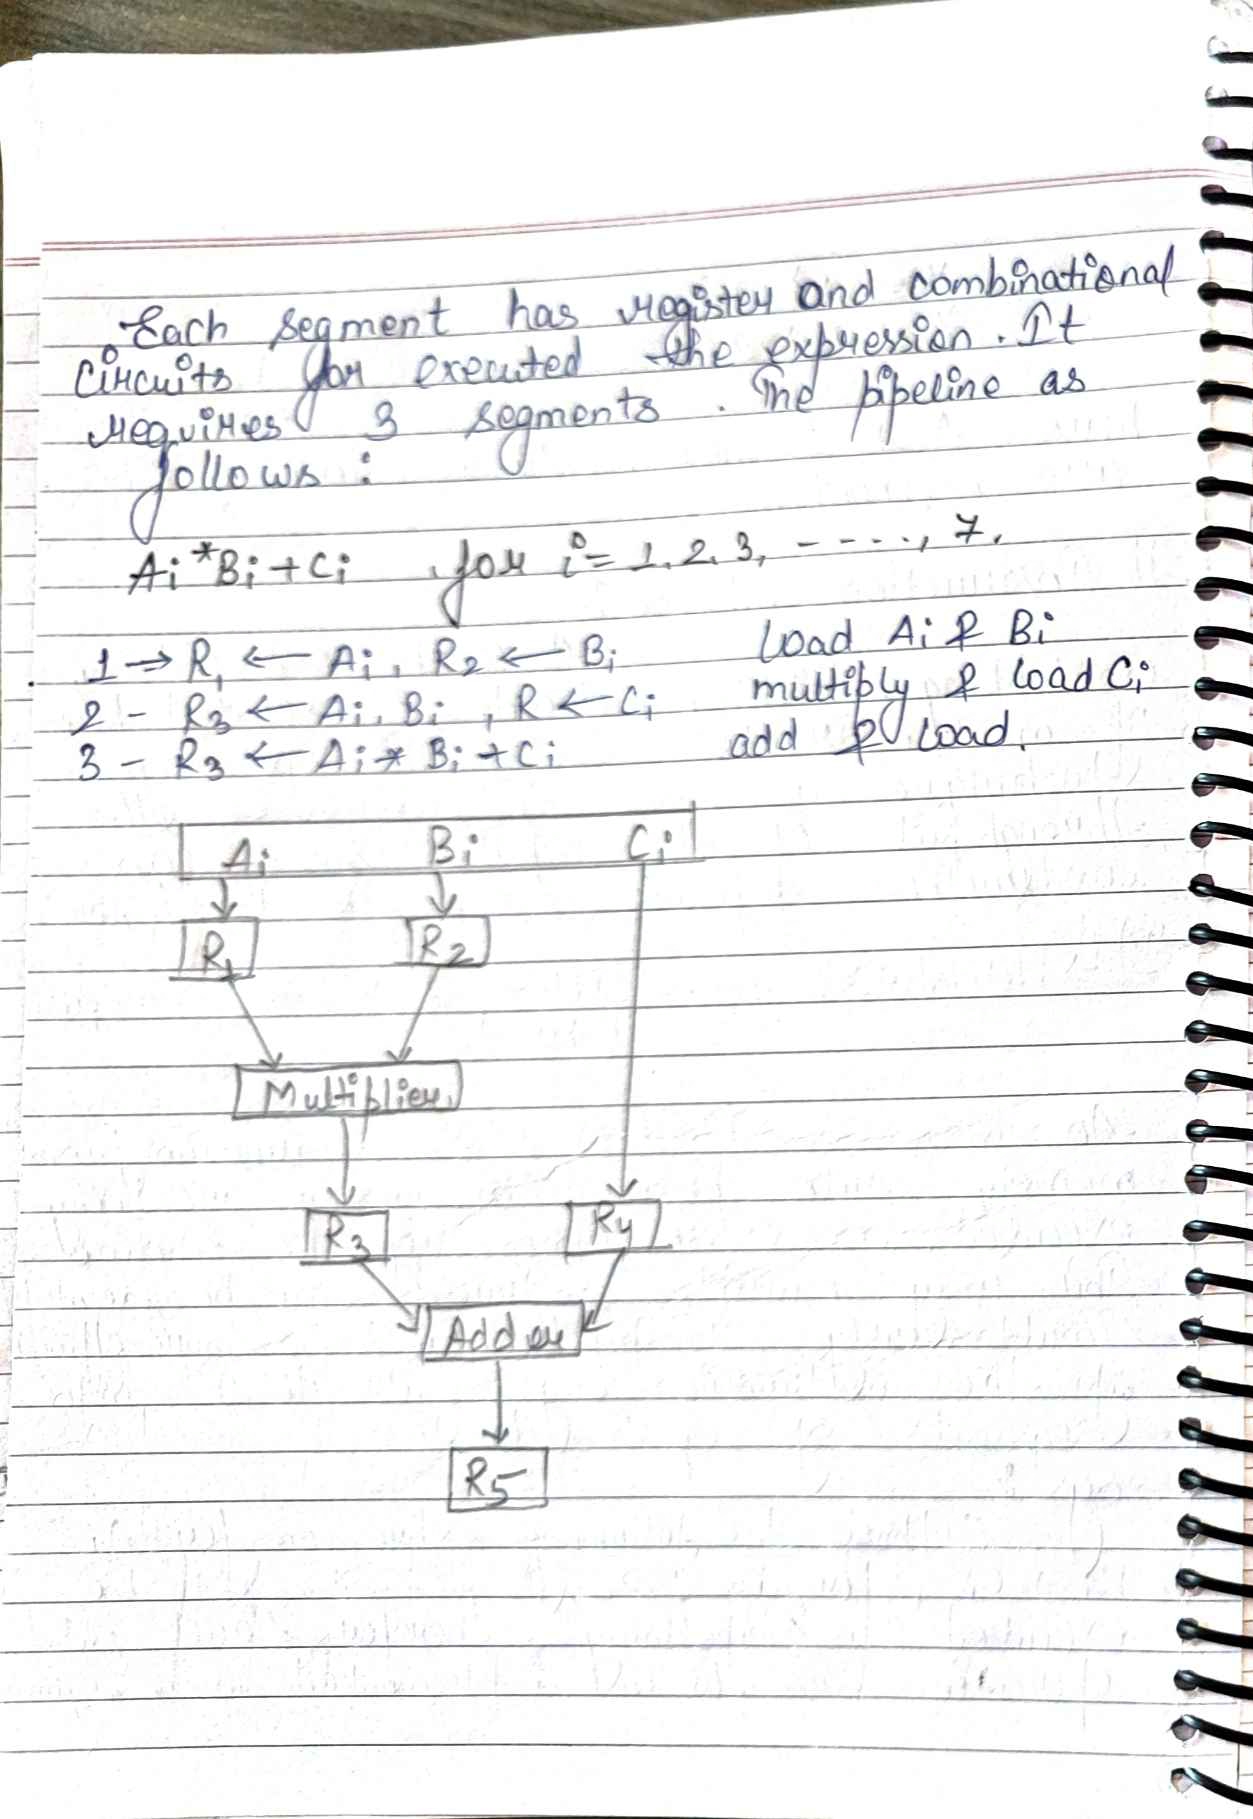 Each segment has register and combinational
circuits for executed the expression. It
requires 3 segments. The pipeline as
follows :
Ai * Bi + Ci for i = 1, 2, 3, - - - -, 7.
1 → R1 ← Ai, R2 ← Bi load Ai & Bi
2 - R3 ← Ai, Bi, R ← Ci multiply & load Ci
3 - R3 ← Ai * Bi + Ci add & load.
Ai Bi Ci
R1 R2
Multiplier
R3 R4
Adder
R5